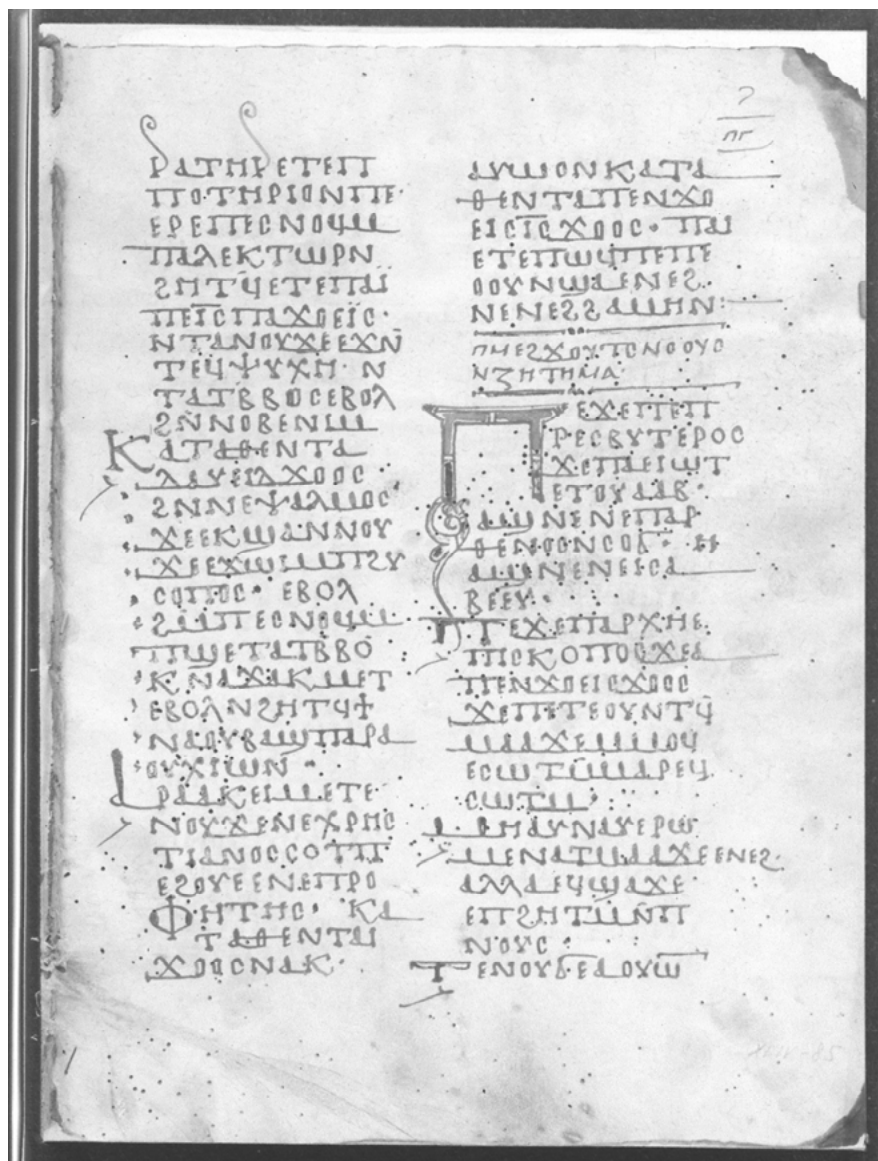 ⲡⲅ
ⲣⲁⲧⲏⲣⲉⲧⲉⲡ
ⲡⲟⲧⲏⲣⲓⲟⲛⲡⲉ·
ⲉⲣⲉⲡⲉⲥⲛⲟϥⲙ
ⲡⲁⲗⲉⲕⲧⲱⲣⲛ
ϩⲏⲧϥⲉⲧⲉⲡⲁⲓ̈
ⲡⲉⲓ̅ⲥ̅ⲡⲁϫⲟⲉⲓ̈ⲥ·
ⲛⲧⲁⲛⲟⲩϫⲉⲉϫⲛ̄
ⲧⲉϥⲯⲩⲭⲏ·ⲛ
ⲧⲁⲧⲃⲃⲟⲥⲉⲃⲟⲗ
ϩⲛ̄ⲛⲟⲃⲉⲛⲓⲙ
ⲕⲁⲧⲁⲑⲉⲛⲧⲁ
ⲇⲁⲩⲉⲓⲇϫⲟⲟⲥ
ϩⲛⲛⲉⲯⲁⲗⲙⲟⲥ
ϫⲉⲉⲕϣⲁⲛⲛⲟⲩ
ϫⲉⲉϫⲱⲓⲙⲡϩⲩ
ⲥⲟⲡⲟⲥ· ⲉⲃⲟⲗ
ϩⲙⲡⲉⲥⲛⲟϥⲙ
ⲡϣⲉϯⲁⲧⲃⲃⲟ
ⲕⲛⲁϫⲁⲕⲙⲉⲧ
ⲉⲃⲟⲗⲛϩⲏⲧϥϯ
ⲛⲁⲟⲩⲃⲁϣⲡⲁⲣⲁ
ⲟⲩⲭⲓⲱⲛ·
ⲁⲣⲁⲁⲕⲉⲓⲙⲉⲧⲉ
ⲛⲟⲩϫⲉⲛⲉⲭⲣⲏⲥ
ⲧⲓⲁⲛⲟⲥⲥⲟⲧⲡ
ⲉϩⲟⲩⲉⲉⲛⲉⲡⲣⲟ
ⲫⲏⲧⲏⲥ· ⲕⲁ
ⲧⲁⲑⲉⲛⲧⲁⲓ
ϫⲟⲟⲥⲛⲁⲕ·
ⲁⲩⲱⲟⲛⲕⲁⲧⲁ
ⲑⲉⲛⲧⲁⲡⲉⲛϫⲟ
ⲉⲓⲥⲓ̅ⲥ̅ϫⲟⲟⲥ· ⲡⲁⲓ
ⲉⲧⲉⲡⲱϥⲡⲉⲡⲉ
ⲟⲟⲩⲛϣⲁⲉⲛⲉϩ
ⲛⲉⲛⲉϩϩⲁⲙⲏⲛ:
ⲡⲙⲉϩϫⲟⲩⲧⲟⲛⲟⲟⲩⲥ
ⲛⲍⲏⲧⲏⲙⲁ·
ⲡⲉϫⲉⲡⲉⲡ
ⲣⲉⲥⲃⲩⲧⲉⲣⲟⲥ
ϫⲉⲡⲁⲉⲓⲱⲧ
ⲉⲧⲟⲩⲁⲁⲃ·
ⲁϣⲛⲉⲛⲉⲡⲁⲣ
ⲑⲉⲛⲟⲥⲛⲥⲟϭ· ⲏ
ⲁϣⲛⲉⲛⲉⲥⲁ
ⲃⲉⲉⲩ·
ⲡⲉϫⲉⲡⲁⲣⲭⲏⲉ
ⲡⲓⲥⲕⲟⲡⲟⲥϫⲉⲁ
ⲡⲉⲛϫⲟⲉⲓⲥϫⲟⲟⲥ
ϫⲉⲡⲉⲧⲉⲟⲩⲛⲧϥ̄
ⲙⲁⲁϫⲉⲙⲙⲟϥ
ⲉⲥⲱⲧⲙ̄ⲙⲁⲣⲉϥ
ⲥⲱⲧⲙ·
ⲙⲏⲁⲩⲛⲁⲩⲉⲣⲱ
ⲙⲉⲛⲁⲧⲙⲁⲁϫⲉⲉⲛⲉϩ·
ⲁⲗⲗⲁⲉϥϣⲁϫⲉ
ⲉⲡϩⲏⲧⲙⲛ̄ⲡ
ⲛⲟⲩⲥ·
ⲧⲉⲛⲟⲩϭⲉⲁⲟⲩⲱ